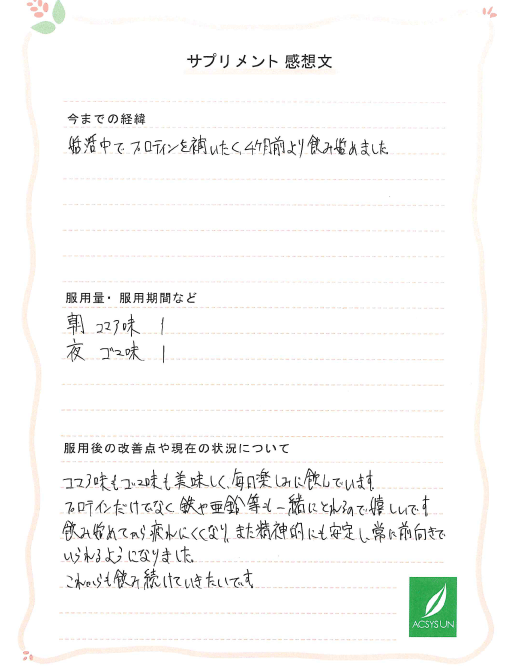 サプリメント 感想文
今までの経緯
妊活中で プロテインを補いたく、4ヶ月前より飲み始めました。
服用量・服用期間など
朝 ココア味 1
夜 ゴマ味 1
服用後の改善点や現在の状況について
ココア味もゴマ味も美味しく、毎日楽しみに飲んでいます。
プロテインだけでなく 鉄や亜鉛等も一緒にとれるので嬉しいです。
飲み始めてから疲れにくくなり、また精神的にも安定し、常に前向きで
いられるようになりました。
これからも飲み続けていきたいです。
ACSYSUN